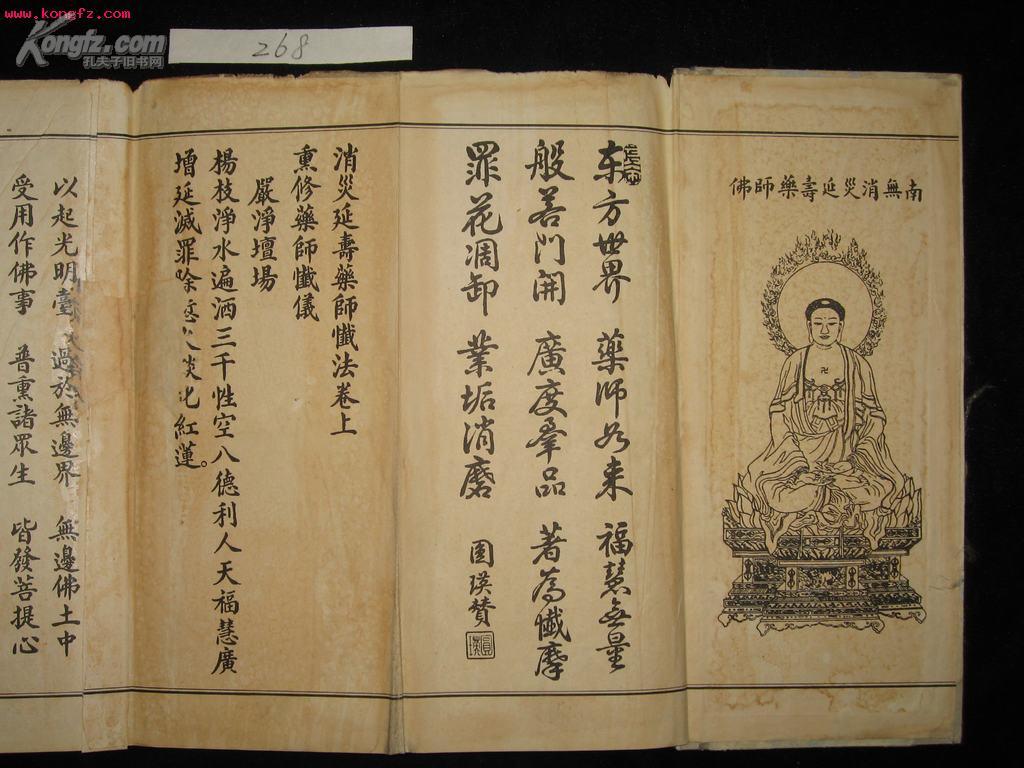 www.kongfz.com
Kongfz.com
孔夫子旧书网
268
南無消災延壽藥師佛
东方世界 藥师如来 福慧無量
般若门開 廣度羣品 著為懺摩
罪花凋卸 業垢消磨 圆瑛赞
消災延壽藥師懺法卷上
熏修藥師懺儀
嚴淨壇場
楊枝淨水遍洒三千性空八德利人天福慧廣
增延滅罪除 炎化紅蓮。
以起光明臺 過於無邊界 無邊佛土中
受用作佛事 普熏諸眾生 皆發菩提心